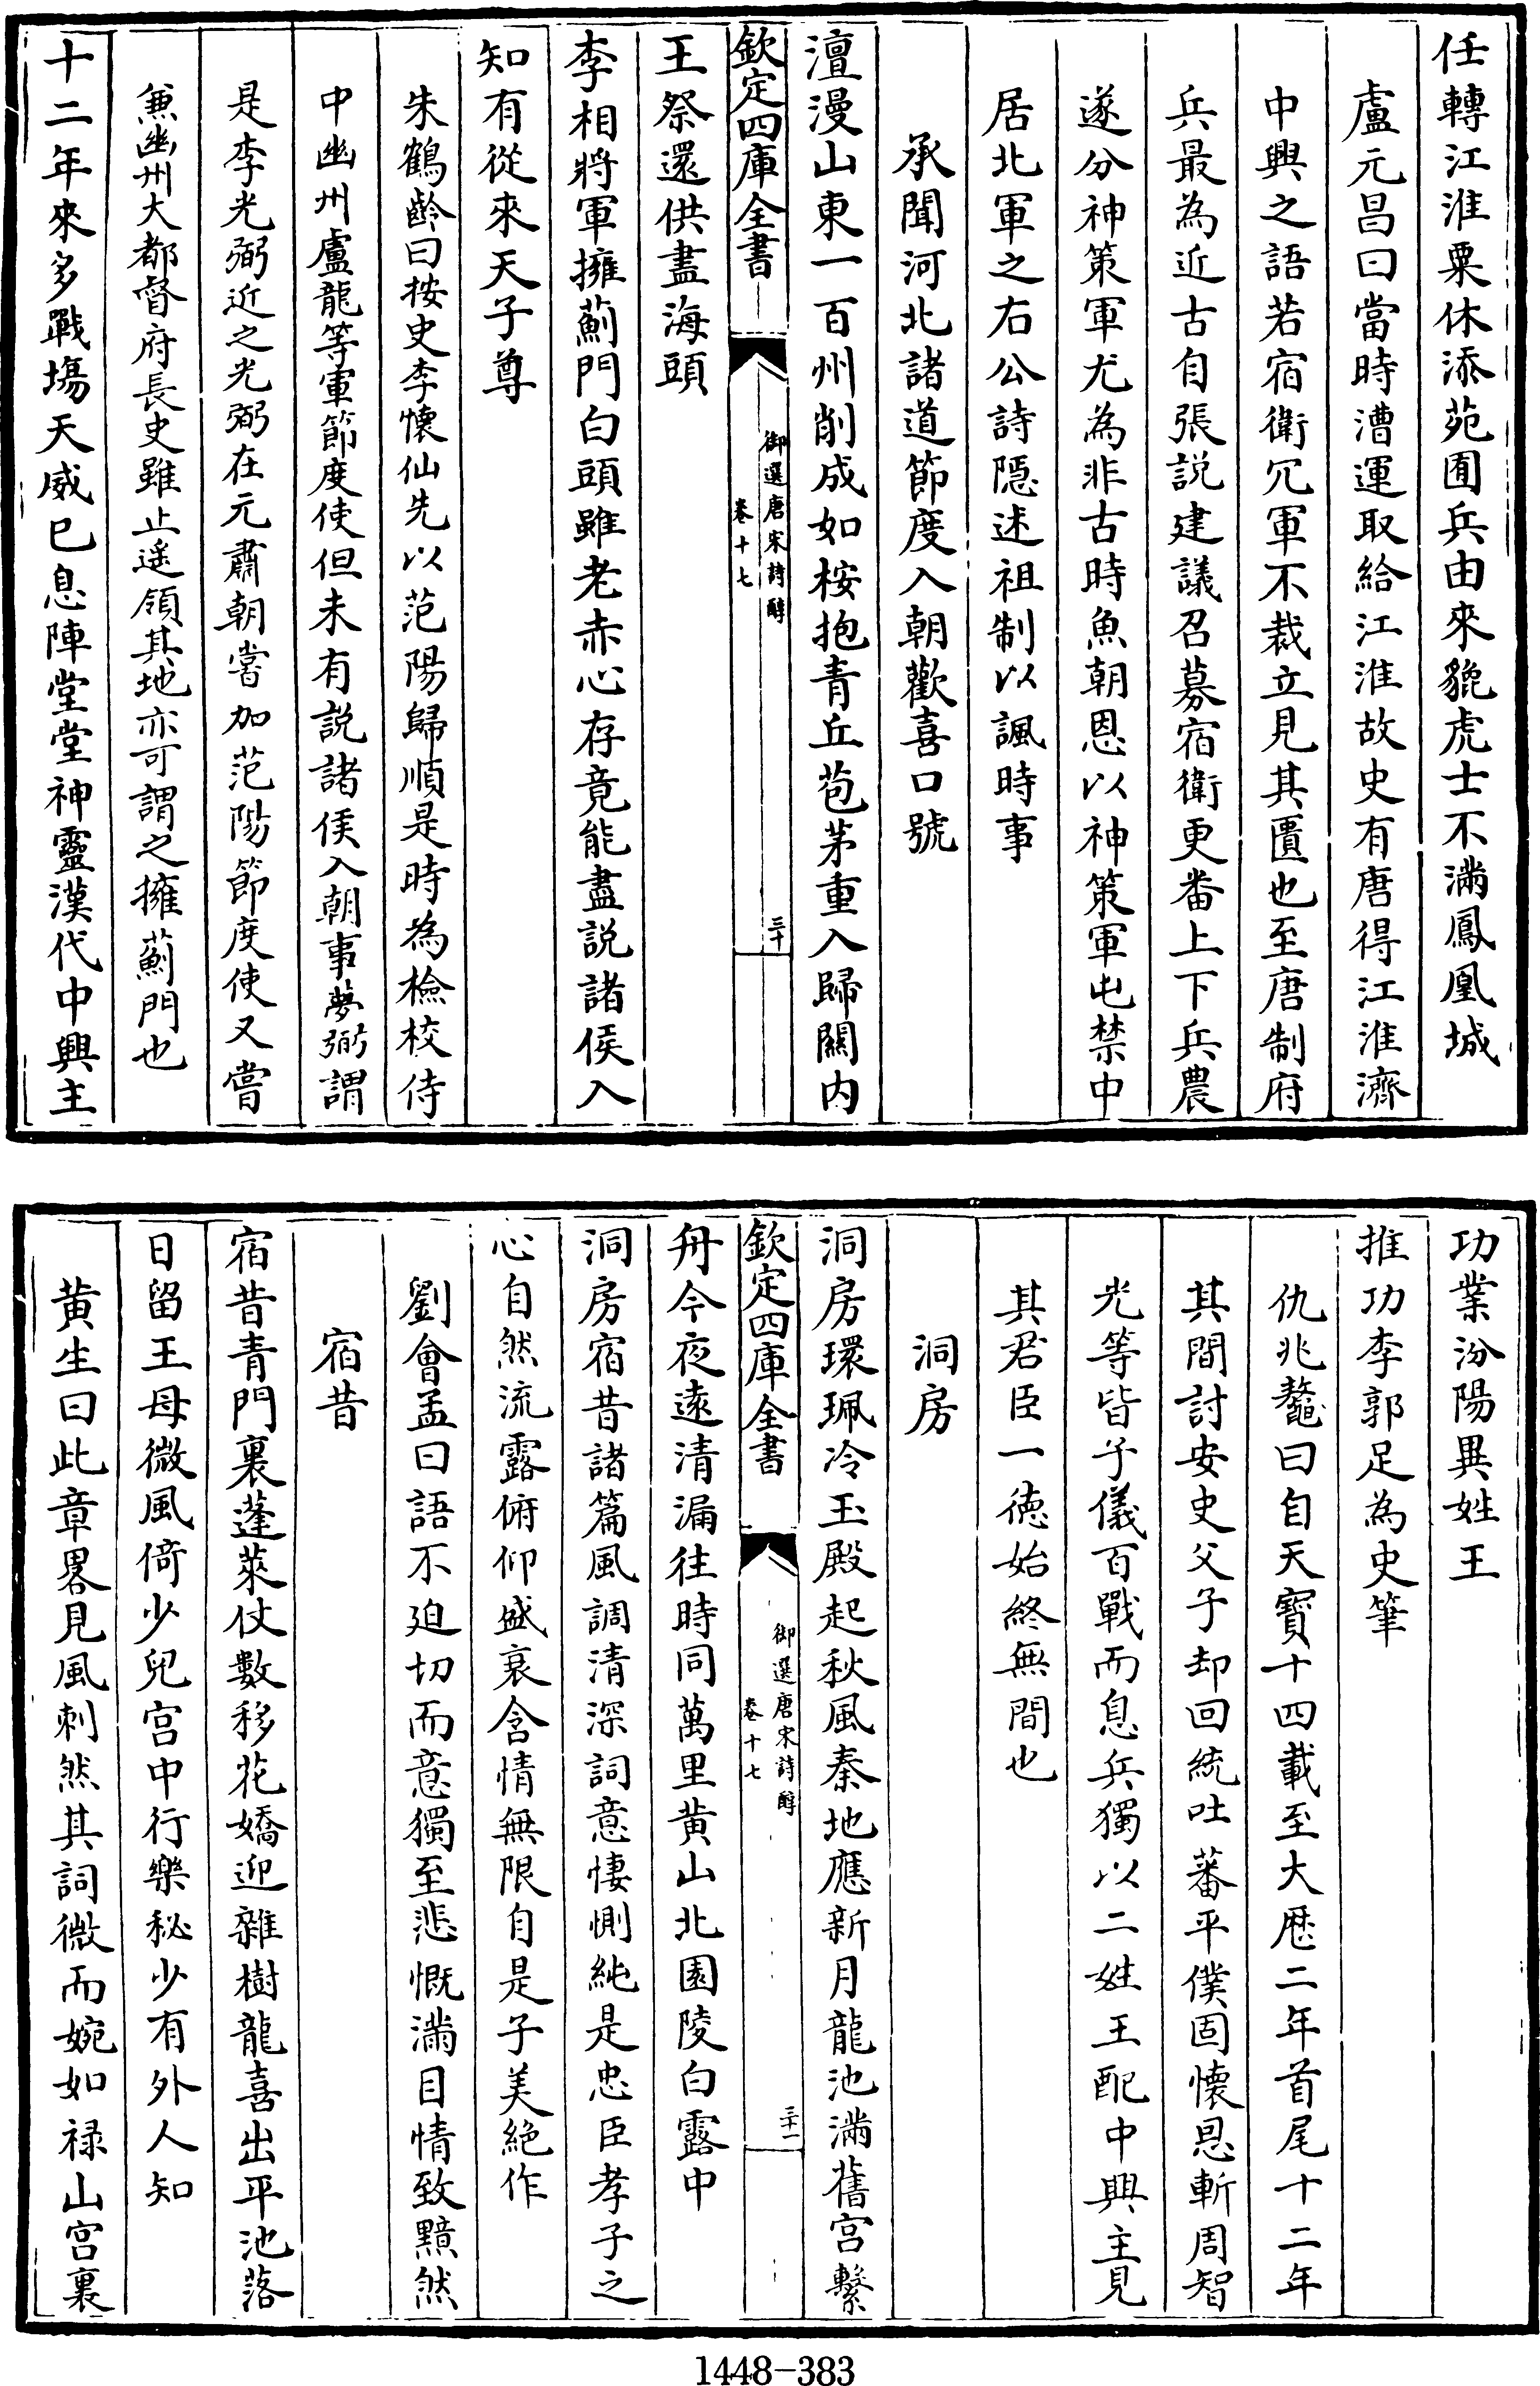 任轉江淮粟休添苑囿兵由來貔虎士不滿鳳凰城
盧元昌曰當時漕運取給江淮故史有唐得江淮濟
中興之語若宿衛冗軍不裁立見其匱也至唐制府
兵最為近古自張説建議召募宿衛更番上下兵農
遂分神策軍尤為非古時魚朝恩以神策軍屯禁中
居北軍之右公詩隱述祖制以諷時事
承聞河北諸道節度入朝歡喜口號
澶漫山東一百州削成如桉抱青丘苞茅重入歸關内
欽定四庫全書
御選唐宋詩醇
卷十七
三十
王祭還供盡海頭
李相將軍擁薊門白頭雖老赤心存竟能盡説諸侯入
知有從來天子尊
朱鶴齡曰按史李懷仙先以范陽歸順是時為檢校侍
中幽州盧龍等軍節度使但未有説諸侯入朝事夢弼謂
是李光弼近之光弼在元肅朝嘗加范陽節度使又嘗
兼幽州大都督府長史雖止遥領其地亦可謂之擁薊門也
十二年來多戰塲天威已息陣堂堂神靈漢代中興主
功業汾陽異姓王
推功李郭足為史筆
仇兆鰲曰自天寳十四載至大厯二年首尾十二年
其間討安史父子却回統吐蕃平僕固懷恩斬周智
光等皆子儀百戰而息兵獨以二姓王配中興主見
其君臣一徳始終無間也
洞房
洞房環珮冷玉殿起秋風秦地應新月龍池滿舊宫繫
欽定四庫全書
御選唐宋詩醇
卷十七
三十一
舟今夜遠清漏往時同萬里黄山北園陵白露中
洞房宿昔諸篇風調清深詞意悽惻純是忠臣孝子之
心自然流露俯仰盛衰含情無限自是子美絶作
劉會孟曰語不廹切而意獨至悲慨滿目情致黯然
宿昔
宿昔青門裏蓬萊仗數移花嬌迎雜樹龍喜出平池落
日留王母微風倚少兒宫中行樂秘少有外人知
黄生曰此章畧見風刺然其詞微而婉如禄山宫裏
1448-383